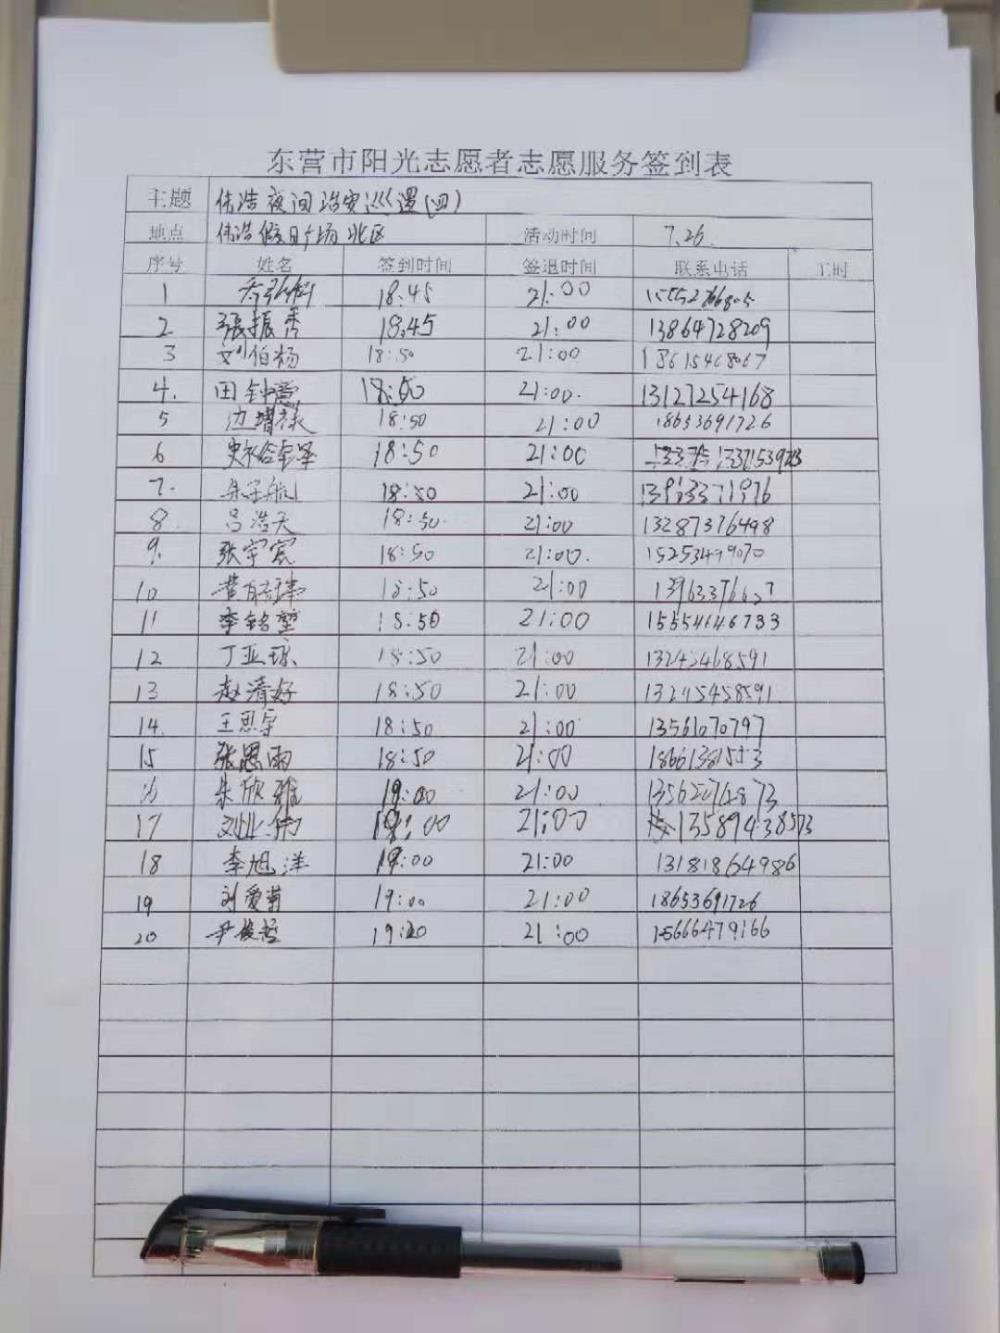 东营市阳光志愿者志愿服务签到表
主题 伟浩夜间治安巡逻(四)
地点 伟浩假日广场北区 活动时间 7.26
序号 姓名 签到时间 签退时间 联系电话 工时
1 18:45 21:00
2 張振秀 18:45 21:00 13864728209
3 刘伯杨 18:50 21:00 18615468067
4. 田钟意 18:50 21:00. 13127254168
5 边增禄 18:50 21:00 18653691726
6 18:50 21:00
7. 朱子航 18:50 21:00
8 吕浩天 18:50. 21:00 13287376498
9. 张宇宸 18:50 21:00. 15253499070
10 18:50 21:00
11 李铭堃 18:50 21:00 15554646733
12 丁亚琼 18:50 21:00
13 赵清好 18:50 21:00
14. 王思宇 18:50 21:00 13561070797
15 张思雨 18:50 21:00
16 朱欣雅 19:00 21:00
17 19:00 21:00 13589438573
18 李旭洋 19:00 21:00 13181864986
19 刘爱菊 19:00 21:00 18653691726
20 19:20 21:00 15666479166